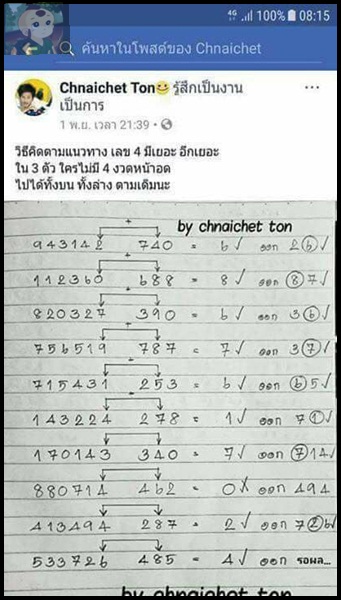 4G 100% 08:15
ค้นหาในโพสต์ของ Chnaichet
Chnaichet Ton รู้สึกเป็นงาน
เป็นการ
1 พ.ย. เวลา 21:39
วิธีคิดตามแนวทาง เลข 4 มีเยอะ อีกเยอะ
ใน 3 ตัว ใครไม่มี 4 งวดหน้าอด
ไปได้ทั้งบน ทั้งล่าง ตามเดิมนะ
by chnaichet ton
943142 740 = 6 ✓ ออก 26 ✓
112360 688 = 8 ✓ ออก 87 ✓
820327 390 = 6 ✓ ออก 36 ✓
756519 787 = 7 ✓ ออก 37 ✓
715431 253 = 6 ✓ ออก 65 ✓
143224 278 = 1 ✓ ออก 71 ✓
170143 340 = 7 ✓ ออก 714 ✓
880714 462 = 0 X ออก 494
413494 287 = 2 ✓ ออก 726 ✓
533726 485 = 4 ✓ ออก รอผล...
by chnaichet ton